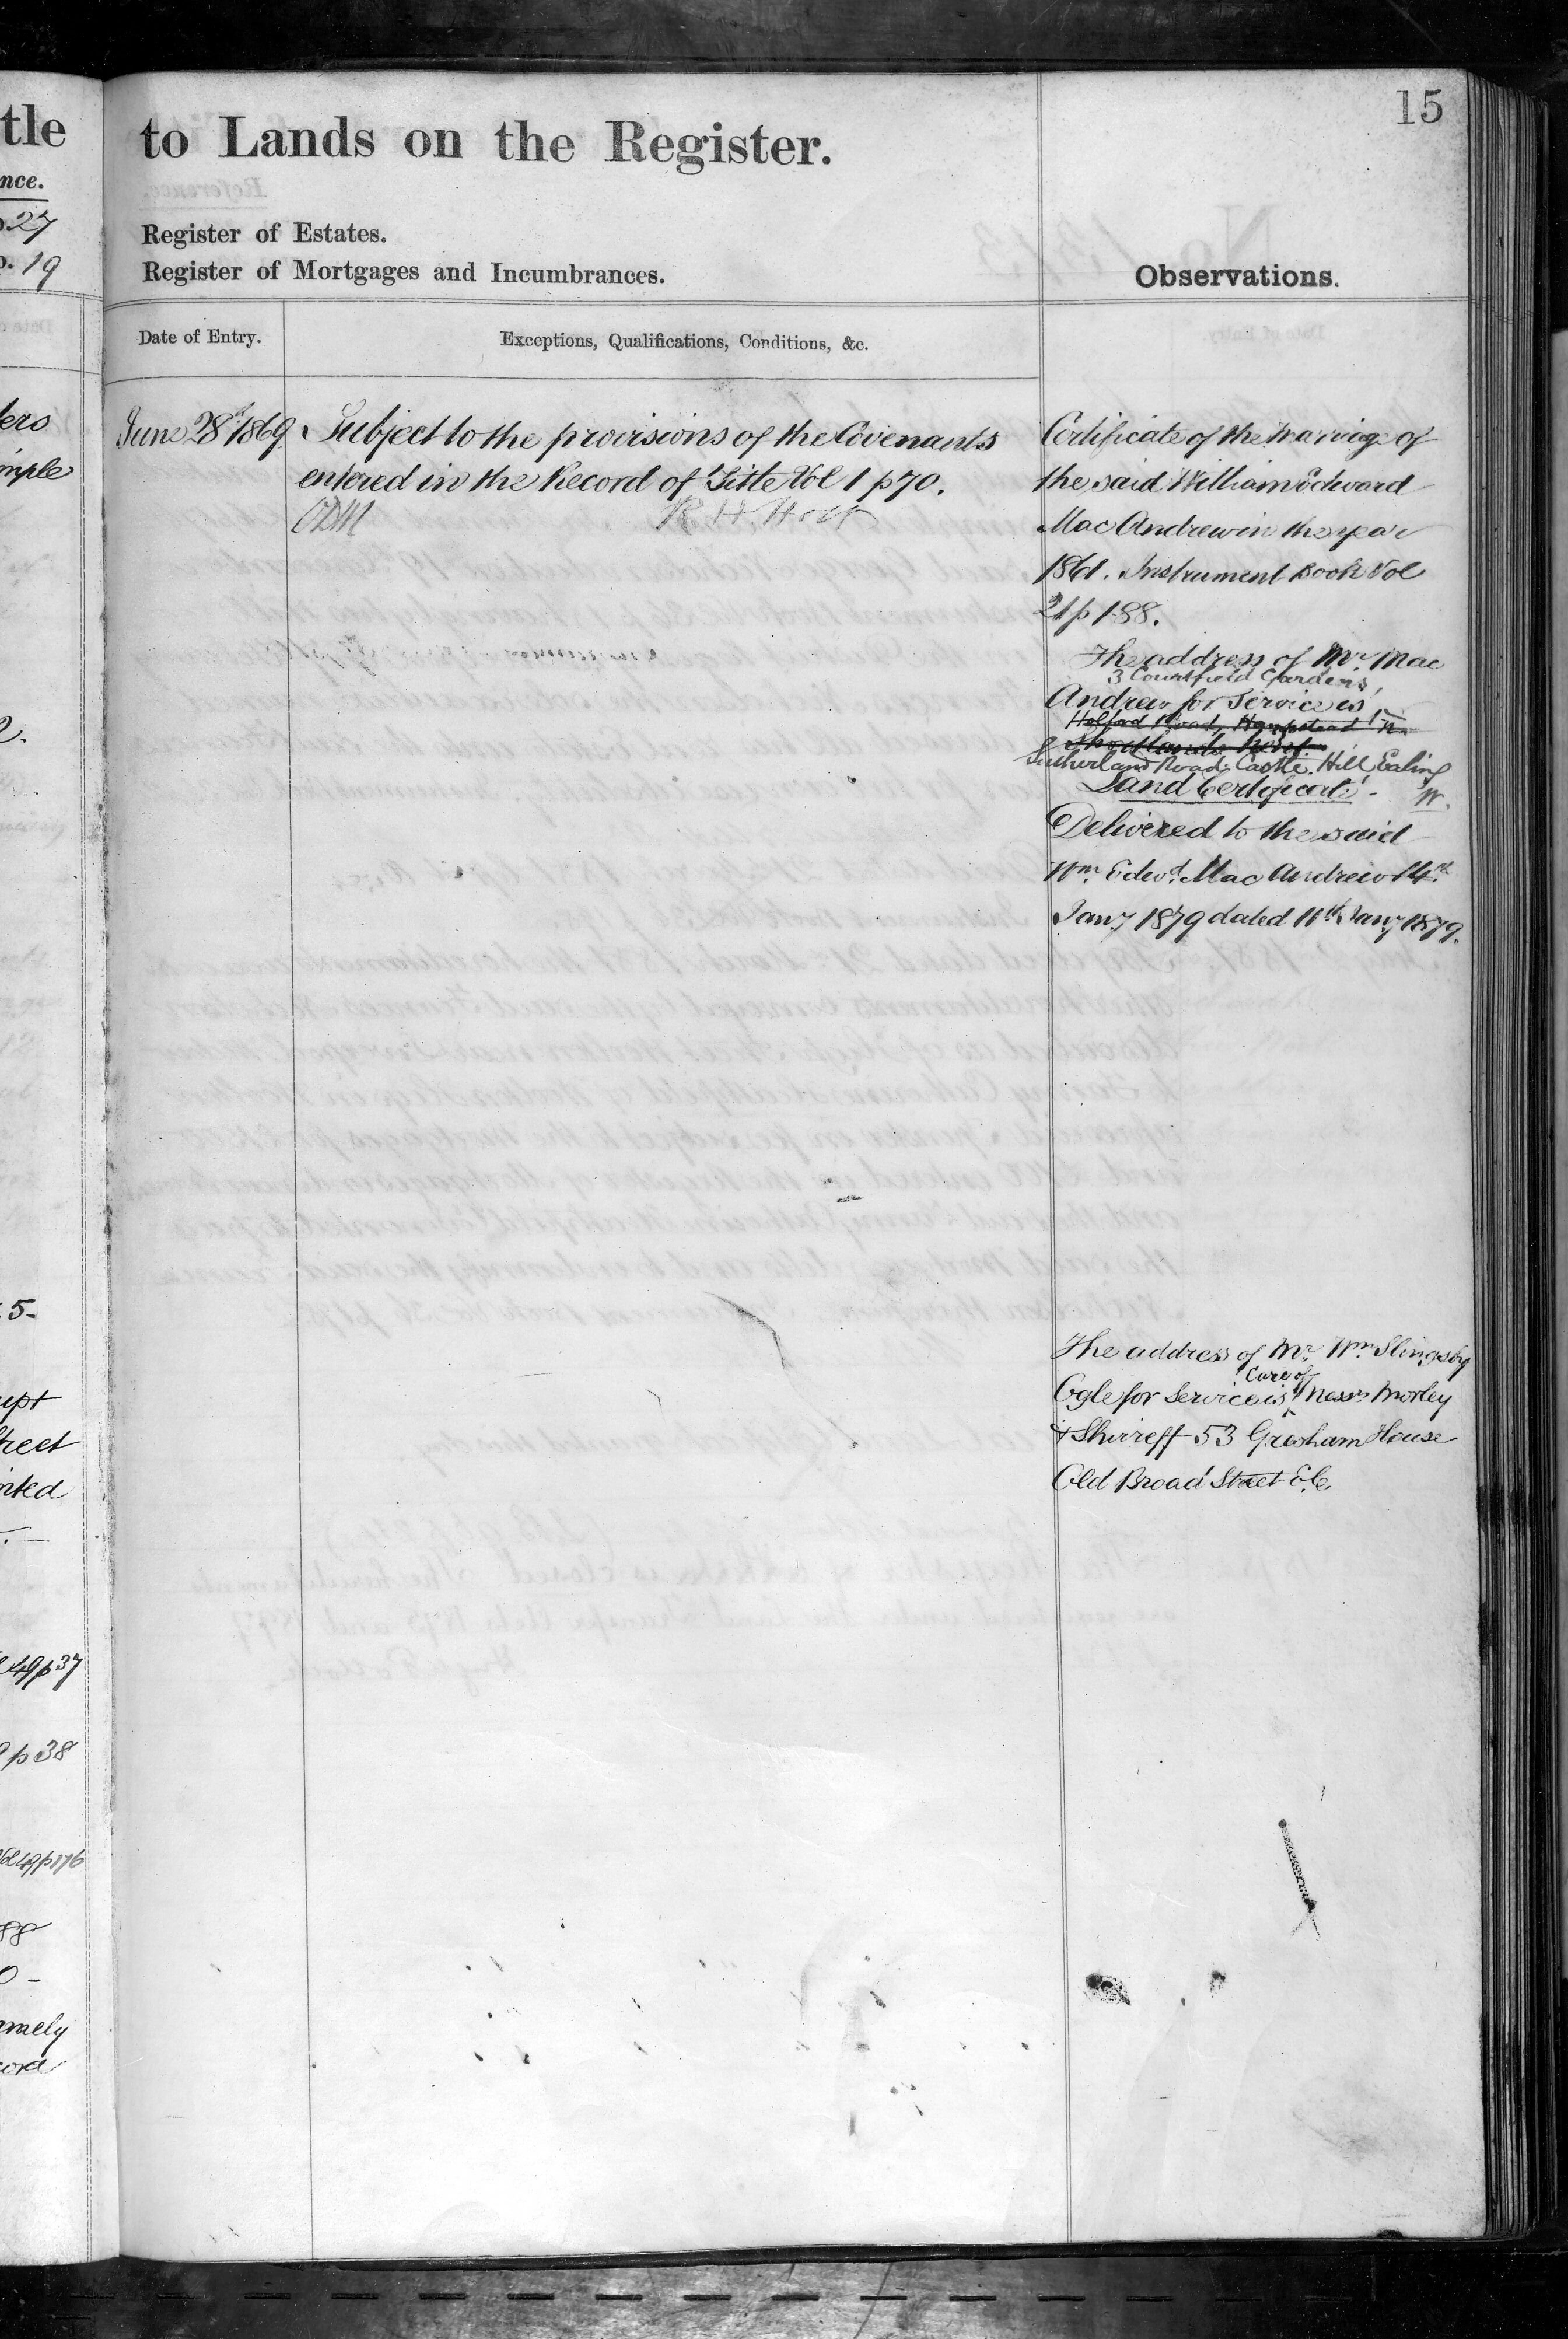 tle
nce.
27
19
ers
mple
2.
5-
upt
treet
nted
49 p 37
p 38
Vol 49 p 176
88
0 -
amely
cord
15
to Lands on the Register.
Register of Estates.
Register of Mortgages and Incumbrances.
Observations.
Date of Entry.
Exceptions, Qualifications, Conditions, &c.
June 28th 1869
Subject to the provisions of the Covenants
entered in the Record of Title Vol 1 p 70.
R. H. Holt
Certificate of the marriage of
the said William Edward
Mac Andrew in the year
1861. Instrument Book Vol
21 p 188.
The address of Mr. Mac
3 Courtfield Gardens
Andrew for Service is
Holford Road, Hampstead N.
Shortlands Kent
Sutherland Road, Castle Hill Ealing
W.
Land Certificate -
Delivered to the said
Wm. Edwd. Mac Andrew 14th
Jany 1879 dated 11th Jany 1879.
The address of Mr. Wm Slingsby
Care of
Ogle for Service is Messrs Morley
& Shirreff 53 Gresham House
Old Broad Street E.C.